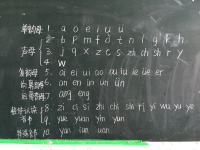 单韵母 1. a o e i u ü
2. b p m f d t n l g k h
声母 3. j q x z c s zh ch sh r y
4. w
复韵母 5. ai ei ui ao ou iu ie üe er
前鼻韵母 6. an en in un ün
后鼻韵母 7. ang eng
整体认读 8. zi ci si zhi chi shi ri yi wu yu ye
音节 9. yue yuan yin yun
10. yan uan